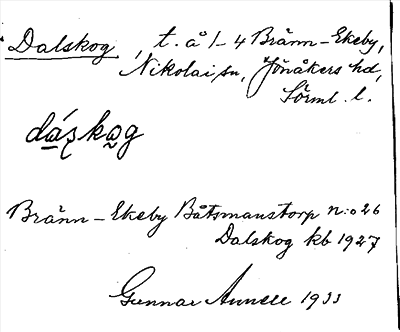 Dalskog, t. å 1–4 Bränn-Ekeby,
Nikolai sn, Jönåkers hd,
Sörml. l.
dáskog
Bränn–Ekeby Båtsmanstorp n:o 26
Dalskog kb 1927
Gunnar 1933